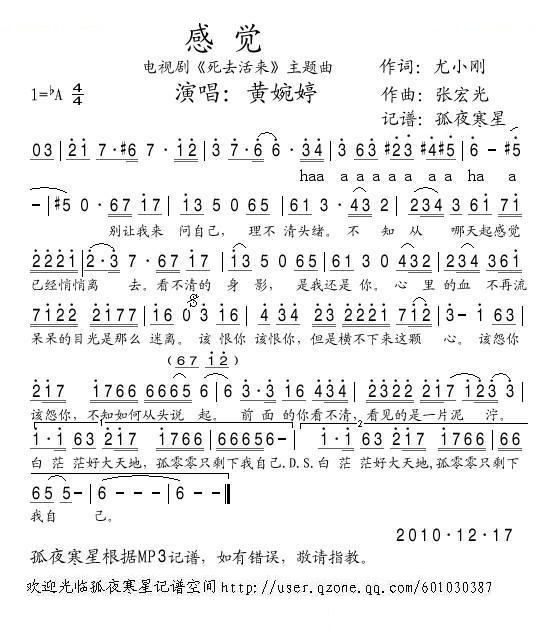 感 觉
电视剧《死去活来》主题曲
作词：尤小刚
1=♭A 4/4
演唱：黄婉婷
作曲：张宏光
记谱：孤夜寒星
03 | 21 7·#6 7·12 | 3 7·6 6·34 | 3 63 #23 #4#5 | 6 - #5
haa a a a a a a ha a
- | #5 0·67 17 | 13 5 0 65 | 61 3·43 | 234 361
别让我来 问自己，理不清头绪。不知从 哪天起感觉
2221 | 2·3 7·67 17 | 13 5 0 65 | 61 30 432 | 234 36
已经悄悄离 去。看不清的 身 影，是我还是你。心里的血 不再流
7122 2177 | 16 0 3 16 | 434 23 2221 712 | 3 63
呆呆的目光是那么 迷离。该恨你 该恨你，但是横不下来这颗 心。该怨你
(67 12)
217 1766 6665 6 | 6 3·3 16 435 | 2322 217 123 3
该怨你，不知如何从头说 起。前面的你看不清，看见的是一片泥 泞。
1·1 63 217 1766 | 66656 - :| 1·1 63 217 1766 | 66
白茫茫好大天地，孤零零只剩下我自己.D.S.白茫茫好大天地,孤零零只剩下
65 5- | 6 - - - | 6 - - ‖
我自 己。
2010·12·17
孤夜寒星根据MP3记谱，如有错误，敬请指教。
欢迎光临孤夜寒星记谱空间http://user.qzone.qq.com/601030387